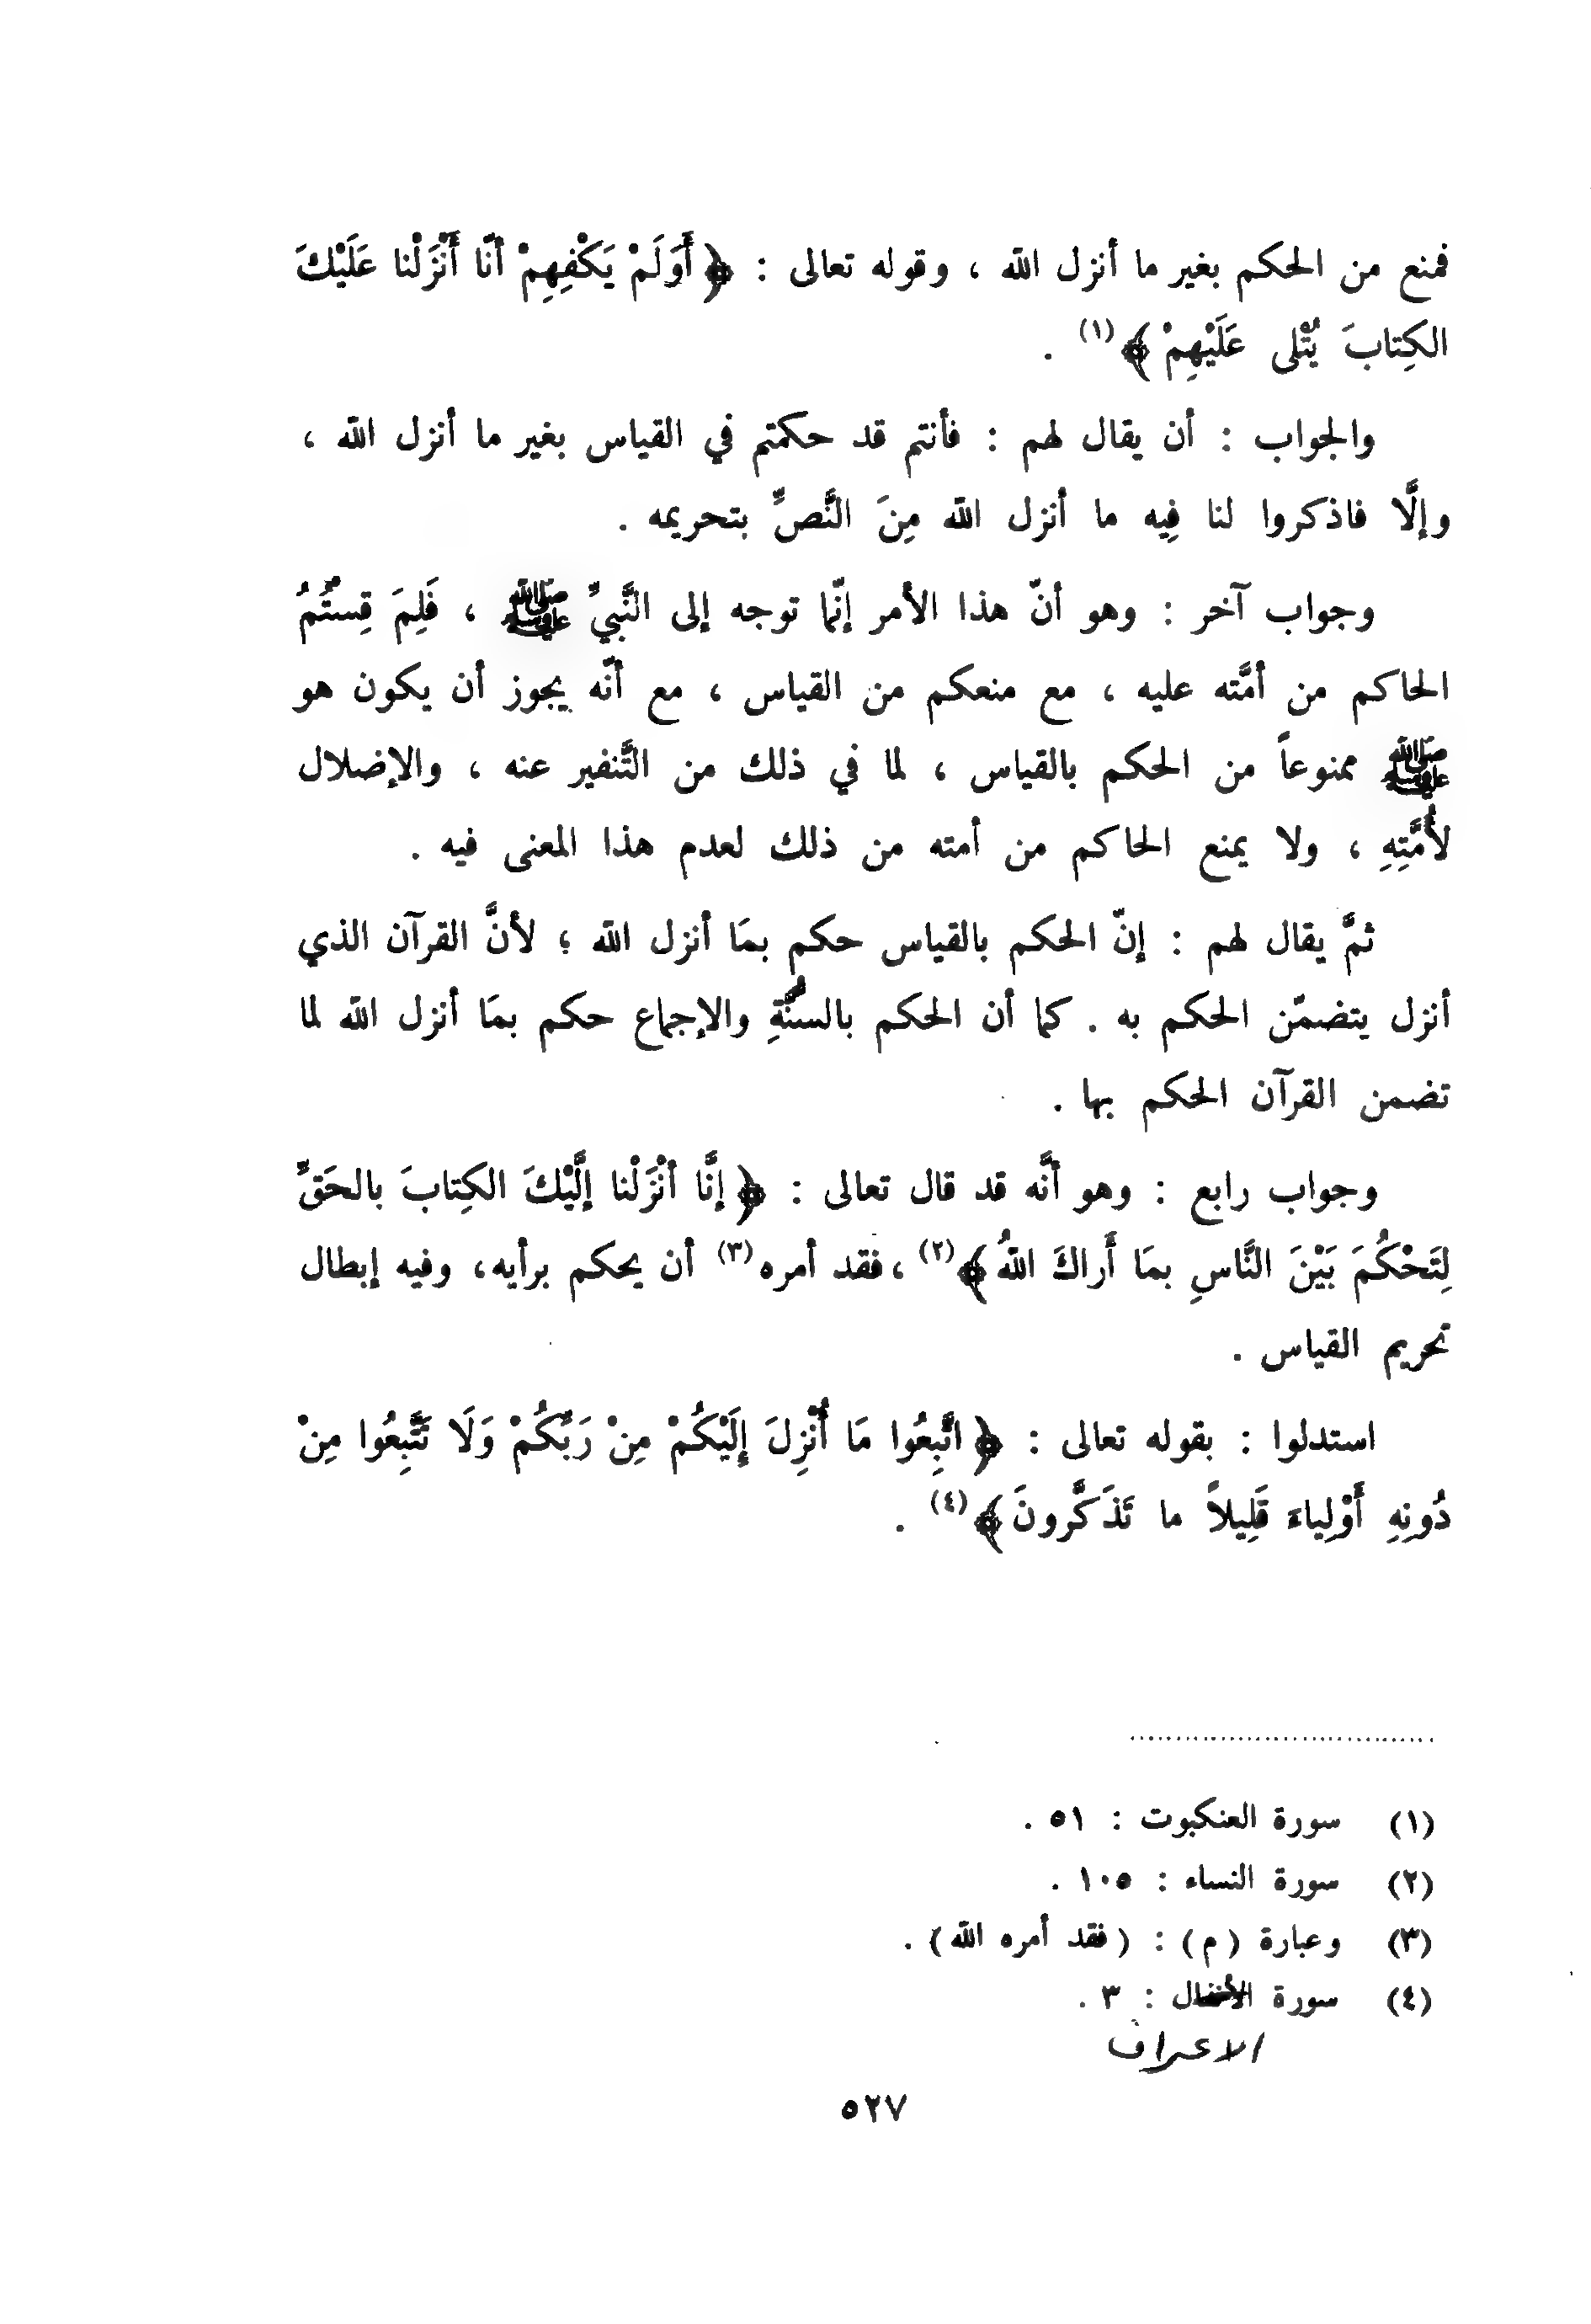 فمنع من الحكم بغير ما أنزل الله ، وقوله تعالى : ﴿أَوَلَمْ يَكْفِهِمْ أنّا أَنْزَلْنا عَلَيْكَ
الكِتابَ يُتْلى عَلَيْهِمْ﴾(١) .
والجواب : أن يقال لهم : فأنتم قد حكمتم في القياس بغير ما أنزل الله ،
وإلَّا فاذكروا لنا فِيه ما أنزل الله مِنَ النَّصِّ بتحريمه .
وجواب آخر : وهو أنّ هذا الأمر إنّما توجه إلى النَّبيِّ ﷺ ، فَلِمَ قِسْتُمُ
الحاكم من أمَّته عليه ، مع منعكم من القياس ، مع أنّه يجوز أن يكون هو
ﷺ ممنوعاً من الحكم بالقياس ، لما في ذلك من التَّنفير عنه ، والإضلال
لأُمَّتِهِ ، ولا يمنع الحاكم من أمته من ذلك لعدم هذا المعنى فيه .
ثمَّ يقال لهم : إنّ الحكم بالقياس حكم بمَا أنزل الله ؛ لأنَّ القرآن الذي
أنزل يتضمّن الحكم به . كما أن الحكم بالسُّنَّةِ والإجماع حكم بمَا أنزل الله لما
تضمن القرآن الحكم بها .
وجواب رابع : وهو أنَّه قد قال تعالى : ﴿إنَّا أنْزَلْنا إلَيْكَ الكِتابَ بالحَقِّ
لِتَحْكُمَ بَيْنَ النَّاسِ بمَا أَراكَ اللهُ﴾(٢) ، فقد أمره(٣) أن يحكم برأيه، وفيه إبطال
تحريم القياس .
استدلوا : بقوله تعالى : ﴿اتَّبِعُوا مَا أُنْزِلَ إِلَيْكُمْ مِنْ رَبِّكُمْ وَلَا تَتَّبِعُوا مِنْ
دُونِهِ أَوْلِياءَ قَلِيلاً ما تَذَكَّرونَ﴾(٤) .
(١) سورة العنكبوت : ٥١ .
(٢) سورة النساء : ١٠٥ .
(٣) وعبارة (م) : (فقد أمره الله) .
(٤) سورة الأنفال : ٣ .
الاعراف
٥٢٧